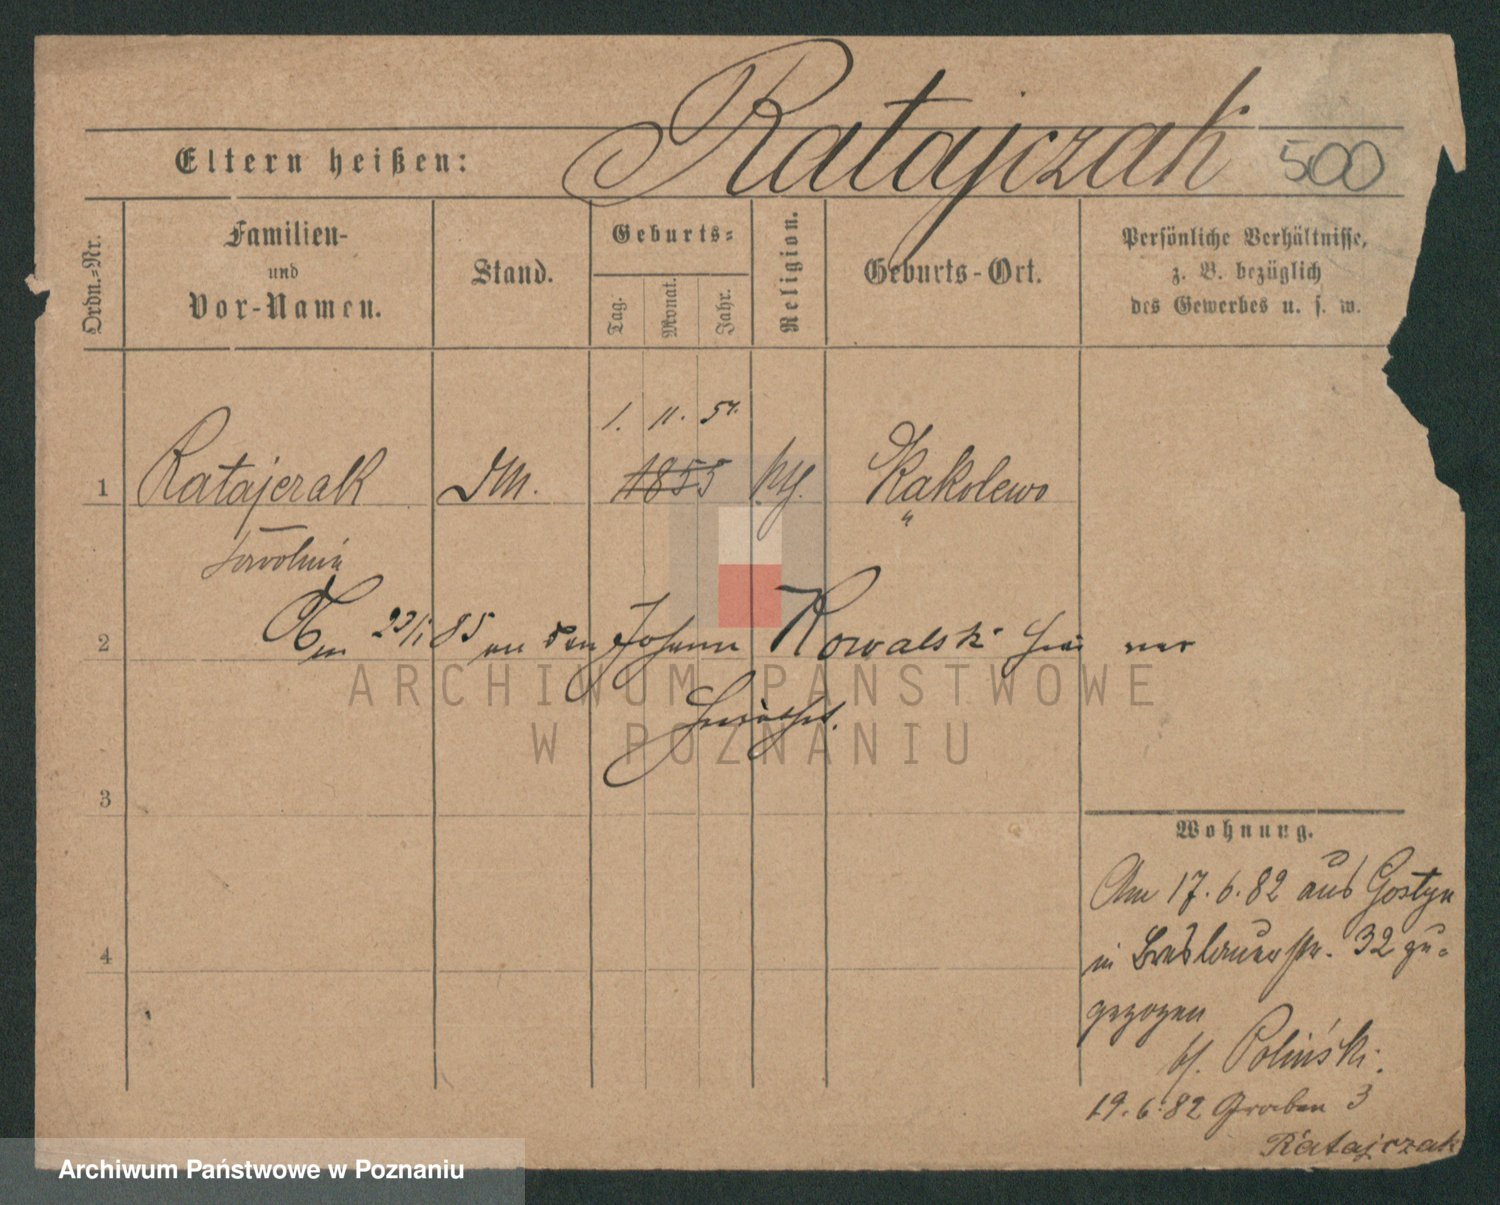 Ratajczak 500
Eltern heißen:
Ordn.-Nr.
Familien-
und
Vor-Namen.
Stand.
Geburts-
Tag.
Monat.
Jahr.
Religion.
Geburts-Ort.
Persönliche Verhältnisse,
z. B. bezüglich
des Gewerbes u. s. w.
1. 11. 57.
1 Ratajczak 1855 Kąkolewo
2 23/1 85 an den Johann Kowalski
3
4
Wohnung.
Am 17. 6. 82 aus Gostyn
in Breslauerstr. 32 zu-
gezogen
b/. Poliński.
19. 6. 82 Graben 3
Ratajczak
ARCHIWUM PAŃSTWOWE
W POZNANIU
Archiwum Państwowe w Poznaniu